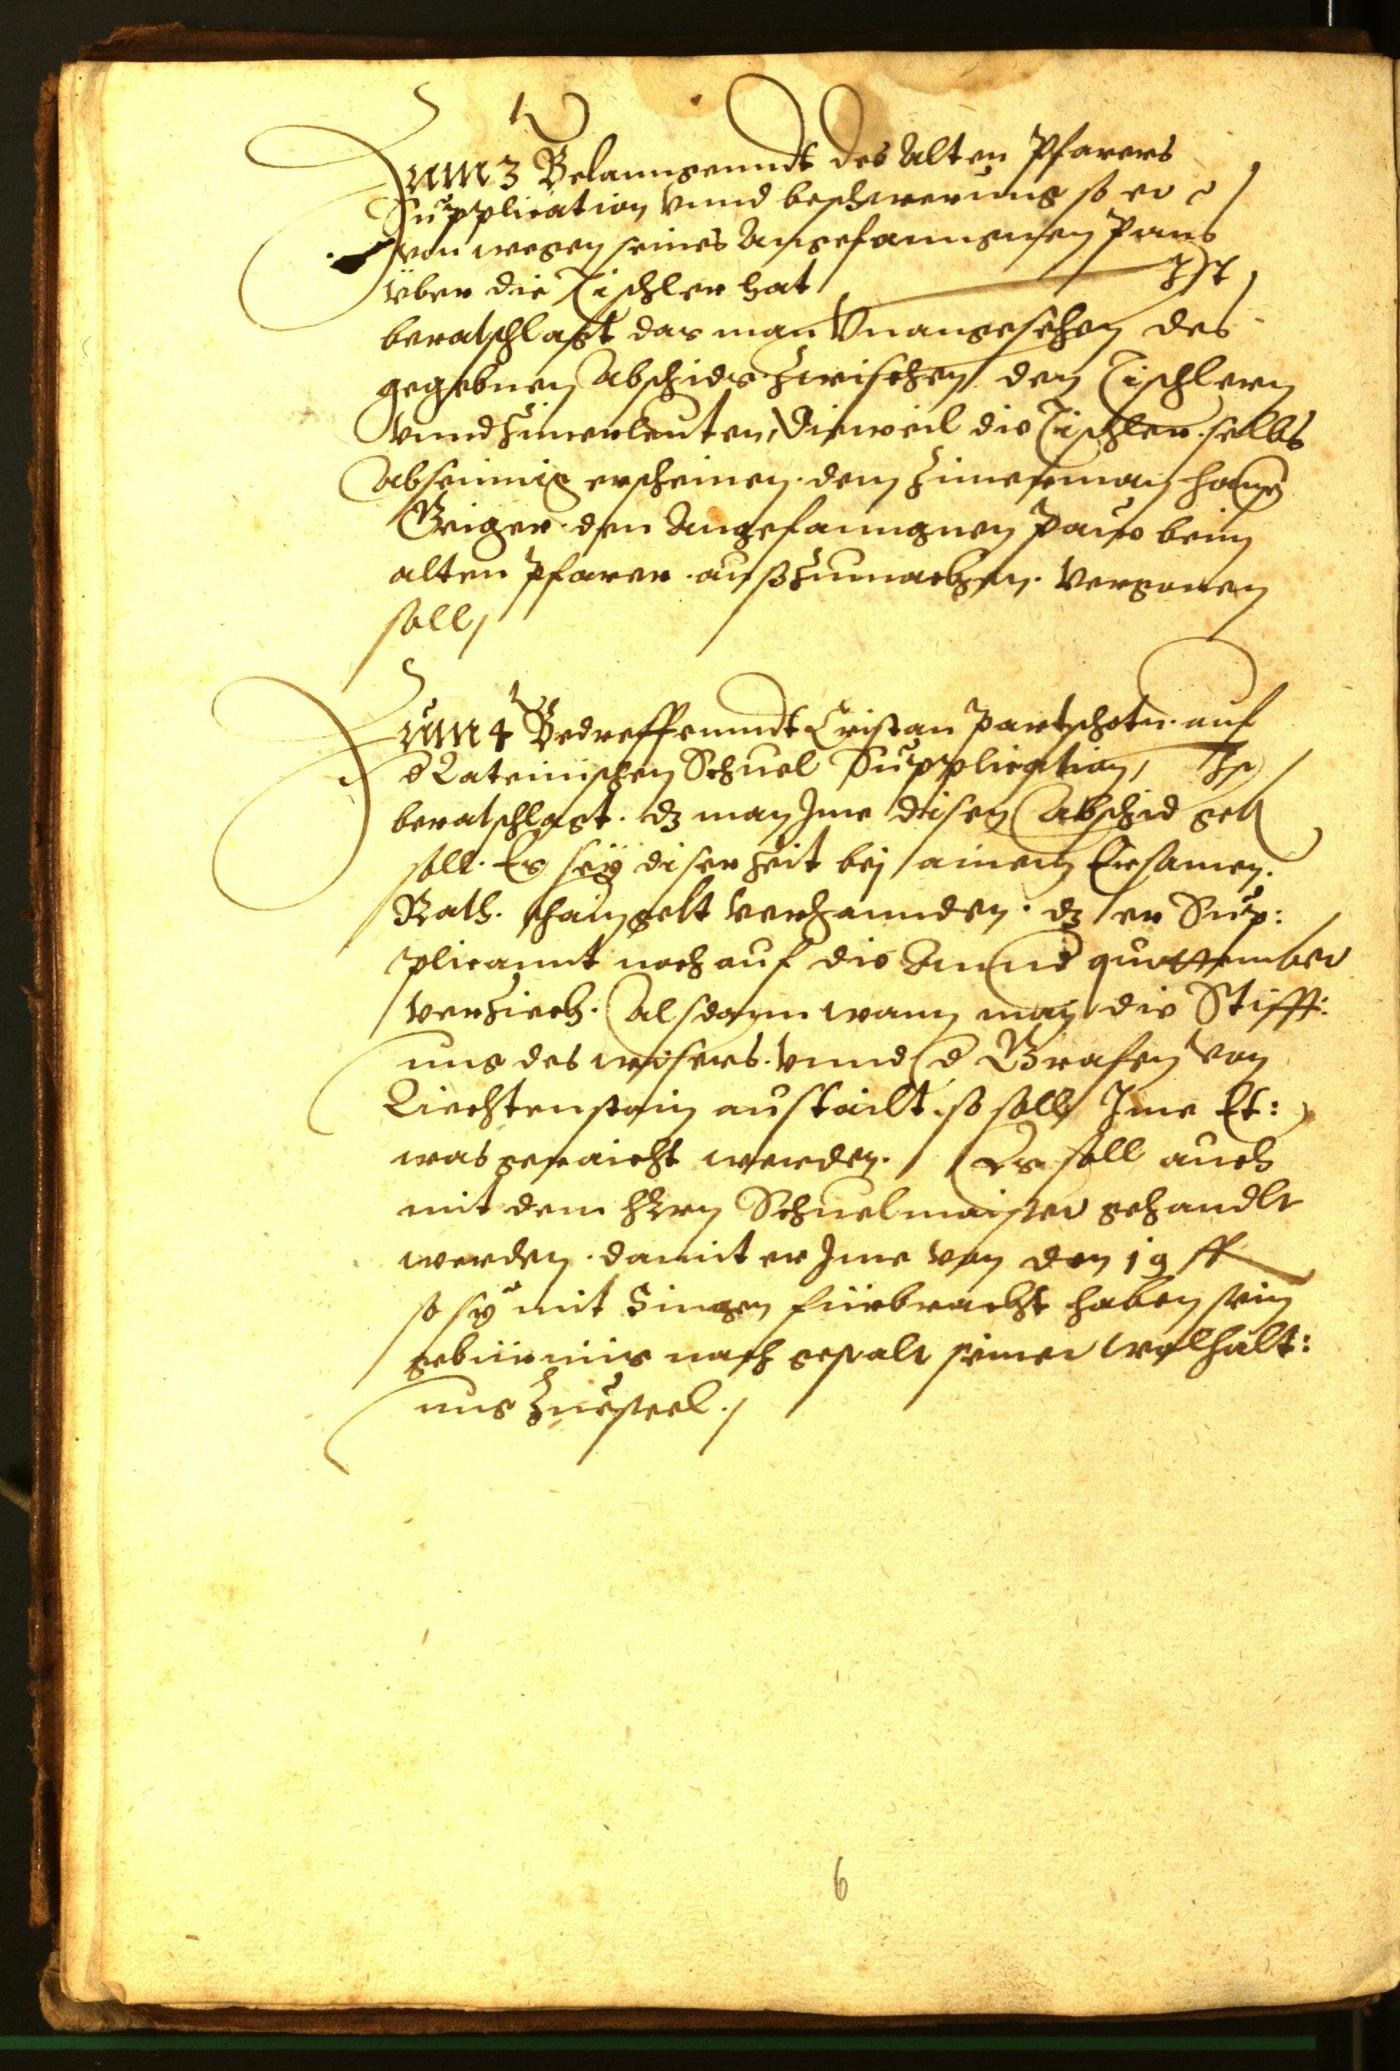 Zum 3 Belanngenndt des Alten Pfarers
Supplication vnnd beschwerung so er
von wegen seines Angefanngnen Paus
über die Tischler hat / Ist
beratschlagt das man Vnangesehen des
gegebnen Abschids zwischen den Tischlern
vnnd Zimerleuten, Dieweil die Tischler selbs
Abseinnig erscheinen. dem Zimerman Hanns
Geiger den Angefanngnen Pau beim
alten Pfarer. außzumachen. Vergonnen
soll /
Zum 4 Bedreffenndt Cristan Partschotn. auf
d Lateinischen Schuel Supplication, Ist
beratschlagt. dz man Jme disen Abschid geb
soll. Es seÿ diser Zeit bej ainem Ersamen.
Rath. khain gelt verhannden. dz er Sup:
plicannt noch auf die quottember
verziech. Alsdann wann man die Stifft:
ung des wisers. vnnd d Grafen von
Liechtenstain austailt. so soll Jme Et:
was geraicht werden. / Es soll auch
mit dem Herrn Schuelmaister gehandlt
werden. damit er Jme von den 19 ff
so sÿ mit Singen fürbracht haben sein
gebürnüs nach gestalt seiner wolhalt:
ung Zuesteel. /
6